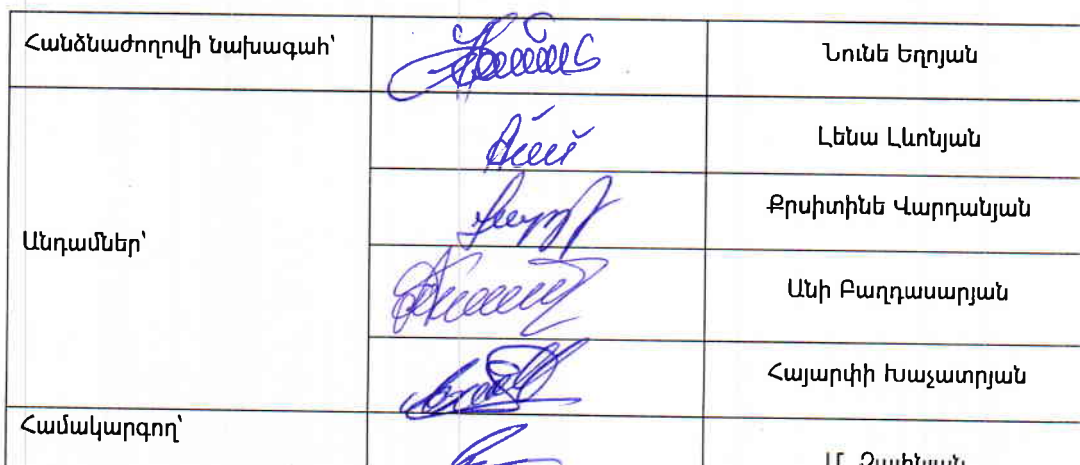 Հանձնաժողովի նախագահ՝ Նունե Եղոյան
Լենա Լևոնյան
Քրսիտինե Վարդանյան
Անդամներ՝
Անի Բաղդասարյան
Հայարփի Խաչատրյան
Համակարգող՝
Մ.